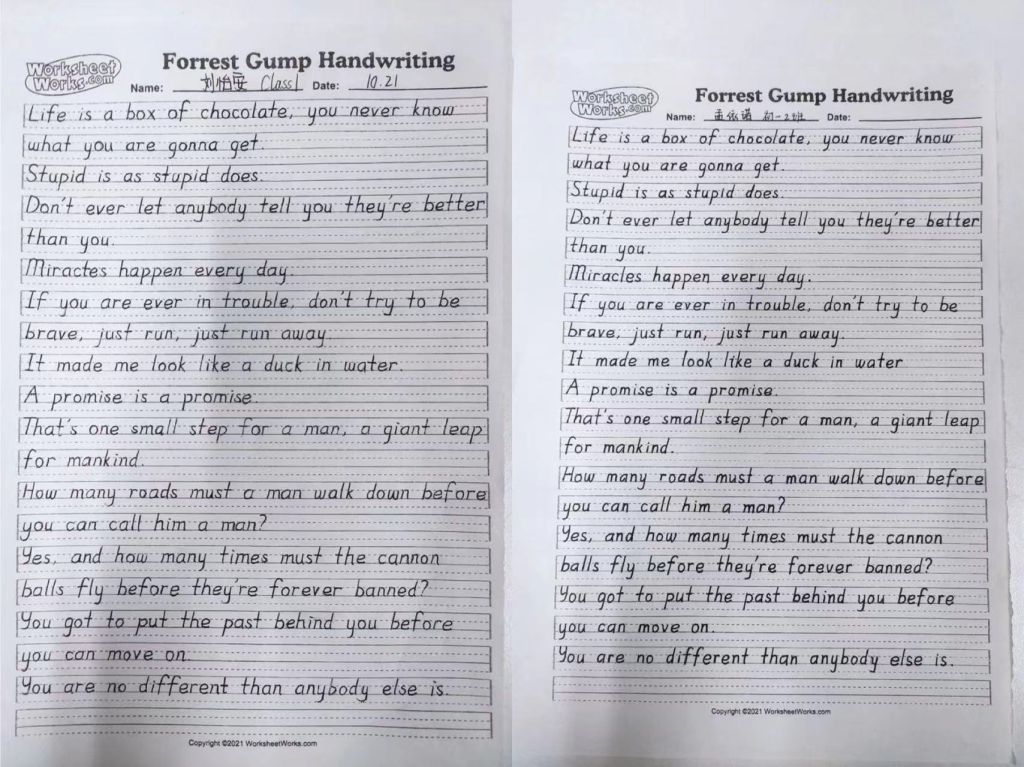 Forrest Gump Handwriting
Worksheet
Works.com
Name: 刘怡雯 Class1 Date: 10.21
Life is a box of chocolate, you never know
what you are gonna get.
Stupid is as stupid does.
Don't ever let anybody tell you they're better
than you.
Miractes happen every day.
If you are ever in trouble, don't try to be
brave, just run, just run away.
It made me look like a duck in water.
A promise is a promise.
That's one small step for a man, a giant leap
for mankind.
How many roads must a man walk down before
you can call him a man?
Yes, and how many times must the cannon
balls fly before they're forever banned?
You got to put the past behind you before
you can move on.
You are no different than anybody else is.
Copyright ©2021 WorksheetWorks.com
Forrest Gump Handwriting
Worksheet
Works.com
Name: 孟依诺 初一2班 Date:
Life is a box of chocolate, you never know
what you are gonna get.
Stupid is as stupid does.
Don't ever let anybody tell you they're better
than you.
Miracles happen every day.
If you are ever in trouble, don't try to be
brave, just run, just run away.
It made me look like a duck in water
A promise is a promise.
That's one small step for a man, a giant leap
for mankind.
How many roads must a man walk down before
you can call him a man?
Yes, and how many times must the cannon
balls fly before they're forever banned?
You got to put the past behind you before
you can move on.
You are no different than anybody else is.
Copyright ©2021 WorksheetWorks.com